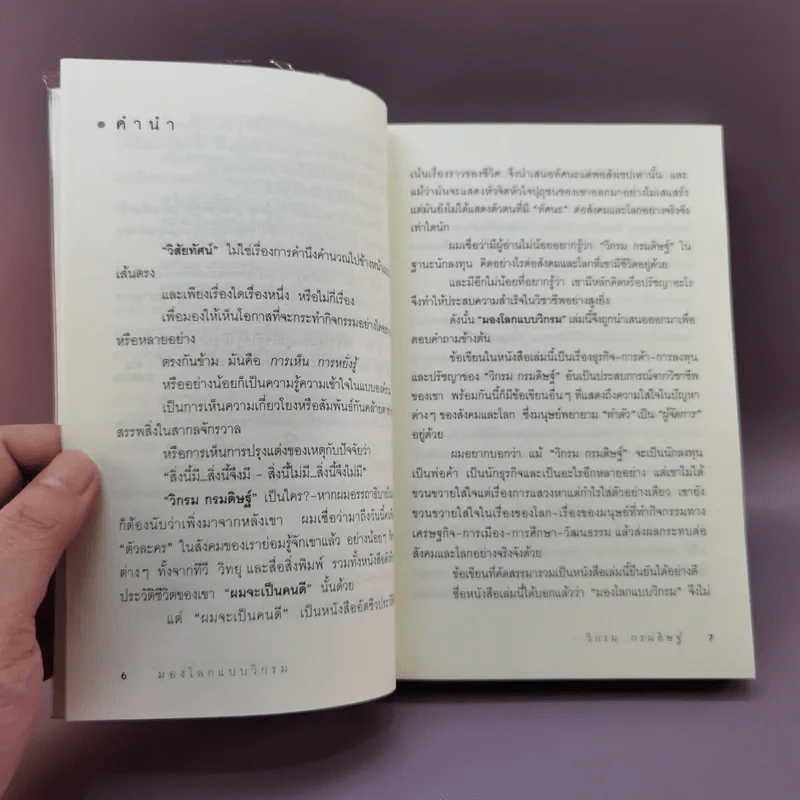 คำนำ
"วิสัยทัศน์" ไม่ใช่เรื่องการคำนึงคำนวณไปข้างหน้า
เส้นตรง
และเพียงเรื่องใดเรื่องหนึ่ง หรือไม่กี่เรื่อง
เพื่อมองให้เห็นโอกาสที่จะกระทำกิจกรรมอย่างใดอย่าง
หรือหลายอย่าง
ตรงกันข้าม มันคือ การเห็น การหยั่งรู้
หรืออย่างน้อยก็เป็นความรู้ความเข้าใจในแบบองค์รวม
เป็นการเห็นความเกี่ยวโยงหรือสัมพันธ์กันคล้ายตาข่าย
สรรพสิ่งในสากลจักรวาล
หรือการเห็นการปรุงแต่งของเหตุกับปัจจัยว่า
"สิ่งนี้มี...สิ่งนี้จึงมี – สิ่งนี้ไม่มี...สิ่งนี้จึงไม่มี"
"วิกรม กรมดิษฐ์" เป็นใคร?-หากผมอรรถาธิบาย
ก็ต้องนับว่าเพิ่งมาจากหลังเขา ผมเชื่อว่ามาถึงวันนี้
"ตัวละคร" ในสังคมของเราย่อมรู้จักเขาแล้ว อย่างน้อยๆ
ต่างๆ ทั้งจากทีวี วิทยุ และสื่อสิ่งพิมพ์ รวมทั้งหนังสือ
ประวัติชีวิตของเขา "ผมจะเป็นคนดี" นั้นด้วย
แต่ "ผมจะเป็นคนดี" เป็นหนังสืออัตชีวประวัติ
6 มองโลกแบบวิกรม
เน้นเรื่องราวของชีวิต จึงนำเสนอทัศนะแต่พอสังเขปเท่านั้น และ
แม้ว่ามันจะแสดงหัวจิตหัวใจปุถุชนของเขาออกมาอย่างไม่เสแสร้ง
แต่มันยังไม่ได้แสดงตัวตนที่มี "ทัศนะ" ต่อสังคมและโลกอย่างจริงจัง
เท่าใดนัก
ผมเชื่อว่ามีผู้อ่านไม่น้อยอยากรู้ว่า "วิกรม กรมดิษฐ์" ใน
ฐานะนักลงทุน คิดอย่างไรต่อสังคมและโลกที่เขามีชีวิตอยู่ด้วย
และมีอีกไม่น้อยที่อยากรู้ว่า เขามีหลักคิดหรือปรัชญาอะไร
จึงทำให้ประสบความสำเร็จในวิชาชีพอย่างสูงยิ่ง
ดังนั้น "มองโลกแบบวิกรม" เล่มนี้จึงถูกนำเสนอออกมาเพื่อ
ตอบคำถามข้างต้น
ข้อเขียนในหนังสือเล่มนี้เป็นเรื่องธุรกิจ-การค้า-การลงทุน
และปรัชญาของ "วิกรม กรมดิษฐ์" อันเป็นประสบการณ์จากวิชาชีพ
ของเขา พร้อมกันนี้ก็มีข้อเขียนอื่นๆ ที่แสดงถึงความใส่ใจในปัญหา
ต่างๆ ของสังคมและโลก ซึ่งมนุษย์พยายาม "ทำตัว" เป็น "ผู้จัดการ"
อยู่ด้วย
ผมอยากบอกว่า แม้ "วิกรม กรมดิษฐ์" จะเป็นนักลงทุน
เป็นพ่อค้า เป็นนักธุรกิจและเป็นอะไรอีกหลายอย่าง แต่เขาไม่ได้
ขวนขวายใส่ใจแต่เรื่องการแสวงหาแต่กำไรใส่ตัวอย่างเดียว เขายัง
ขวนขวายใส่ใจในเรื่องของโลก-เรื่องของมนุษย์ที่ทำกิจกรรมทาง
เศรษฐกิจ-การเมือง-การศึกษา-วัฒนธรรม แล้วส่งผลกระทบต่อ
สังคมและโลกอย่างจริงจังด้วย
ข้อเขียนที่คัดสรรมารวมเป็นหนังสือเล่มนี้ยืนยันได้อย่างดี
ชื่อหนังสือเล่มนี้ได้บอกแล้วว่า "มองโลกแบบวิกรม" จึงไม่
วิกรม กรมดิษฐ์ 7